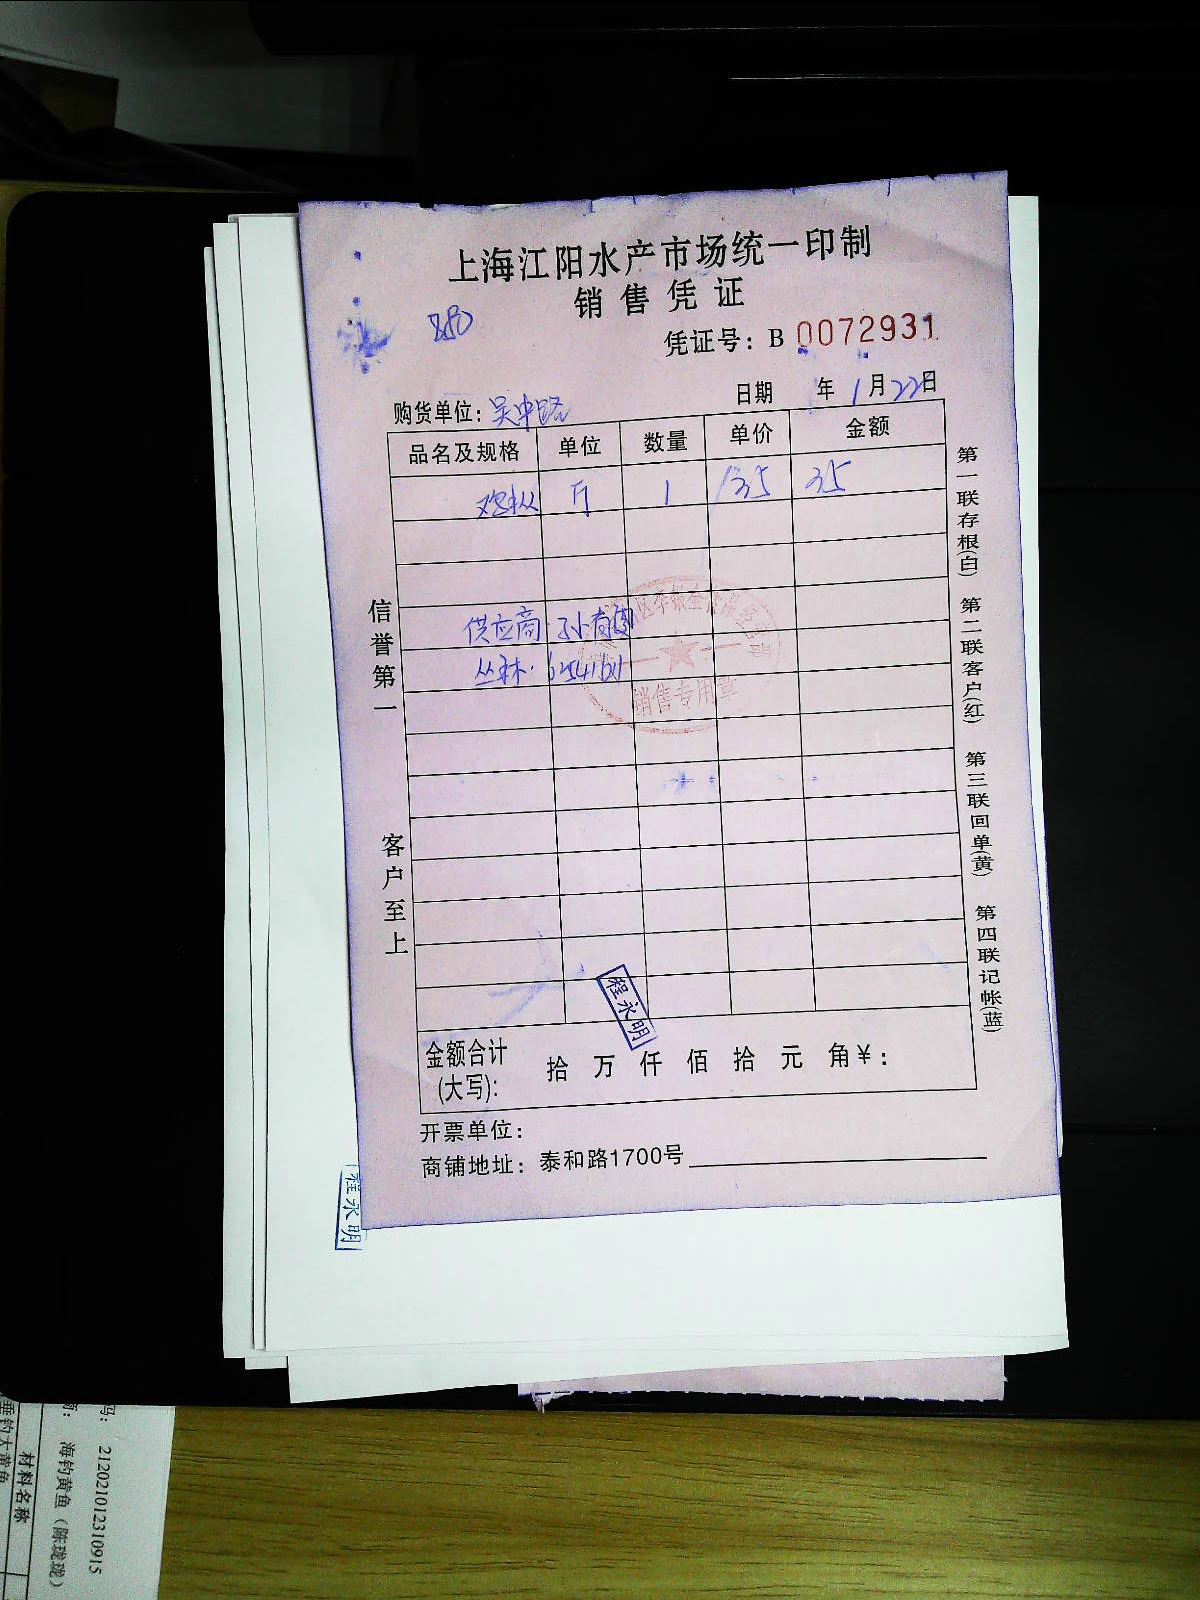 上海江阳水产市场统一印制
销售凭证
凭证号：B 0072931
日期 年 1月22日
购货单位：吴中路
品名及规格 单位 数量 单价 金额
鸡枞 斤 1 135 35
供应商：孙有
丛林：
销售专用章
信誉第一
客户至上
第一联存根(白)
第二联客户(红)
第三联回单(黄)
第四联记帐(蓝)
程永明
金额合计
(大写)： 拾 万 仟 佰 拾 元 角￥：
开票单位：
商铺地址：泰和路1700号
程永明
212021012310915
海钓黄鱼（陈珑珑）
材料名称